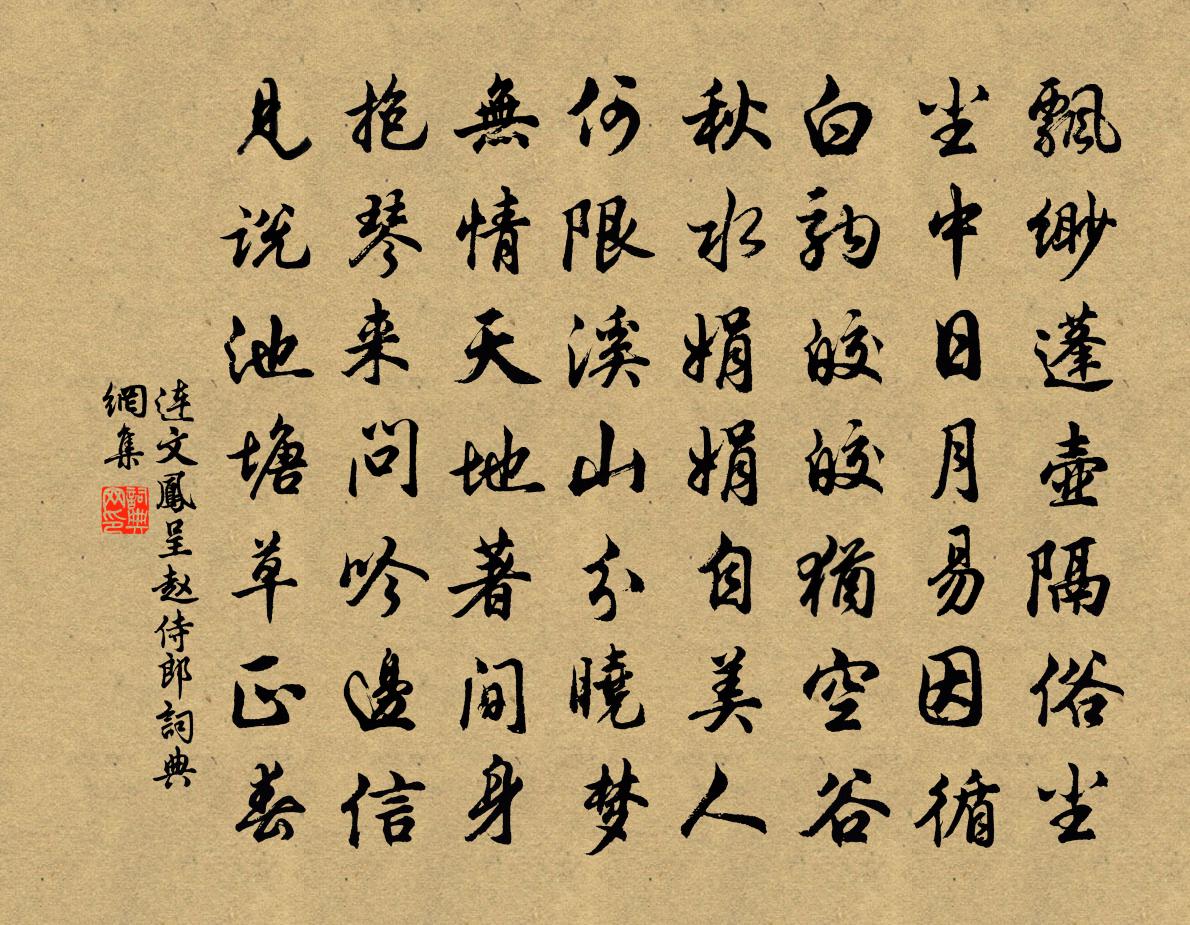 飄緲蓬壺隔俗尘
尘中日月易因循
白駒皎皎猶空谷
秋水娟娟自美人
何限溪山分曉梦
無情天地著间身
抱琴来问吟邊信
見说池塘草正春
连文鳳呈赵侍郎詞典
網集
詞典
网印